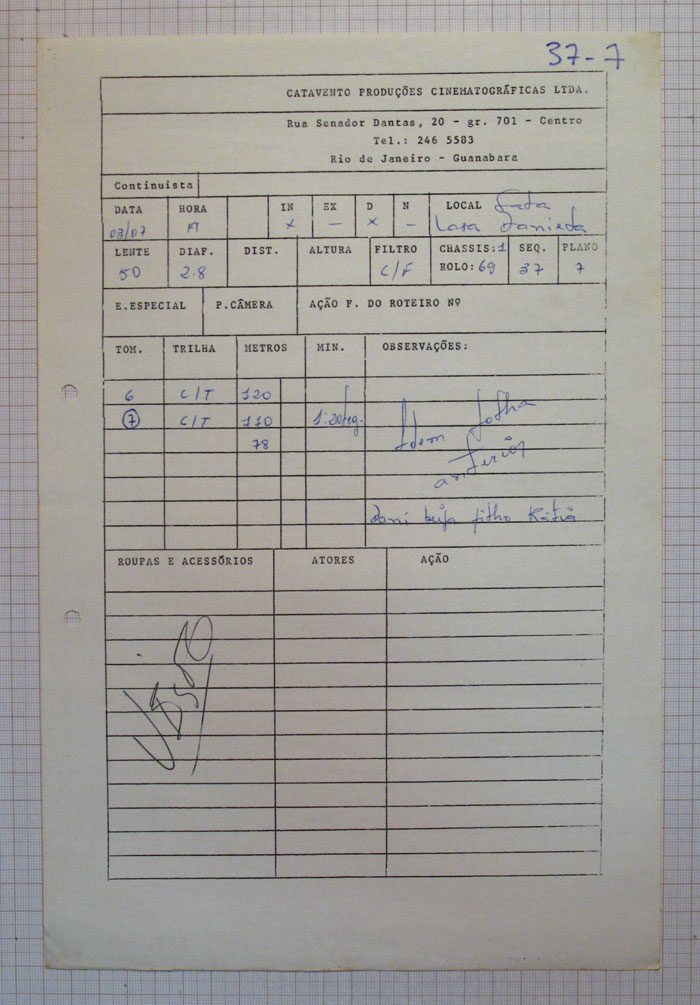 37-7
CATAVENTO PRODUÇÕES CINEMATOGRÁFICAS LTDA.
Rua Senador Dantas, 20 - gr. 701 - Centro
Tel.: 246 5583
Rio de Janeiro - Guanabara
Continuista
DATA HORA IN EX D N LOCAL Sala
03/07 x — x - Casa Daniela
LENTE DIAF. DIST. ALTURA FILTRO CHASSIS:1 SEQ. PLANO
50 2.8 C/F ROLO:69 37 7
E.ESPECIAL P.CÂMERA AÇÃO F. DO ROTEIRO Nº
TOM. TRILHA METROS MIN. OBSERVAÇÕES:
6 C/T 120
7 C/T 110 Idem folha
78 anterior
Dani beija filho Kátia
ROUPAS E ACESSÓRIOS ATORES AÇÃO